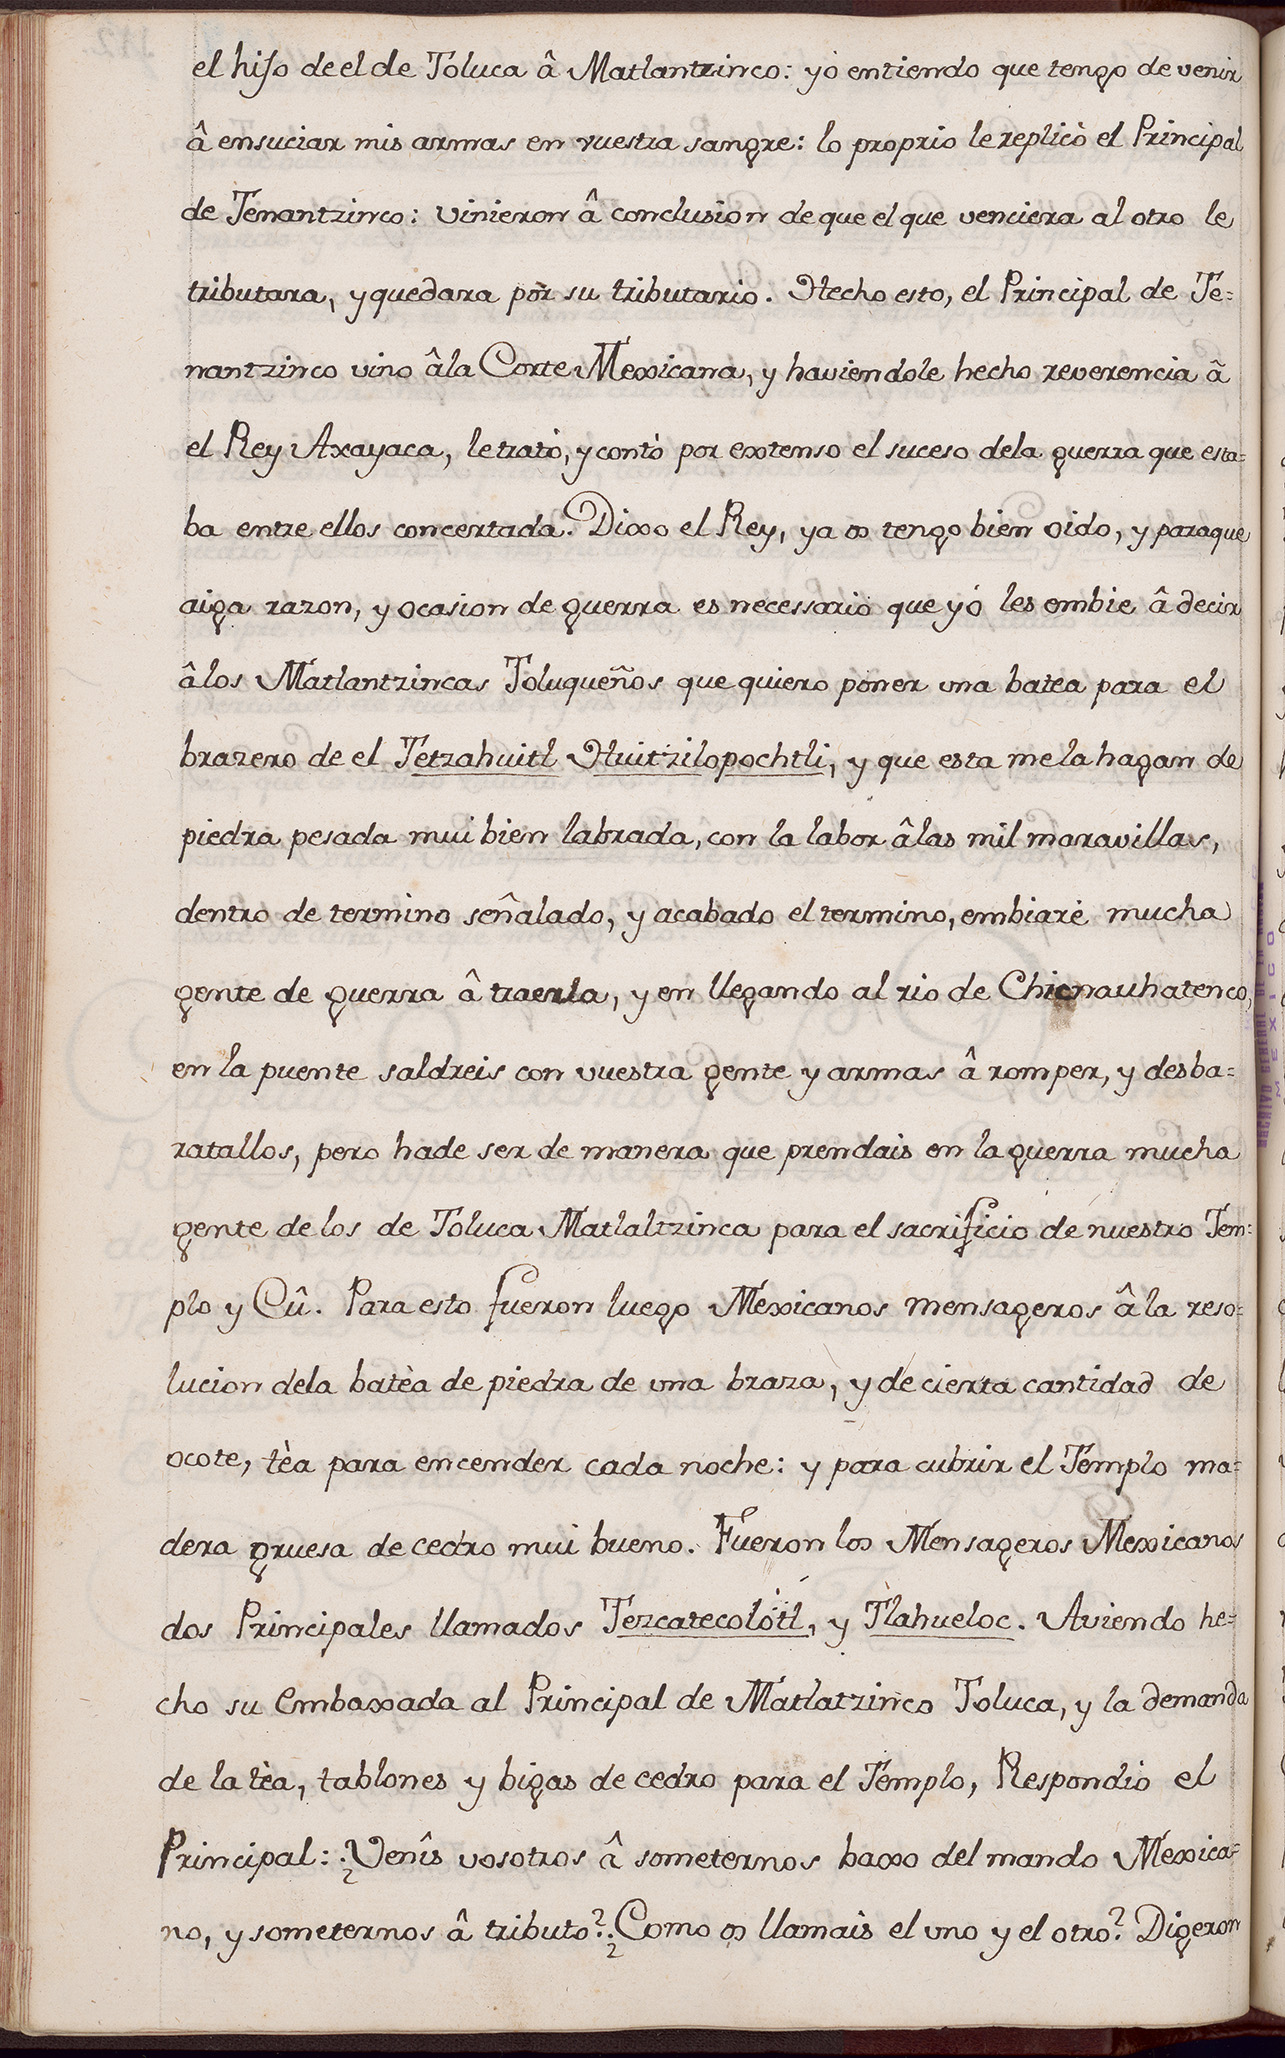 el hijo de el de Toluca â Matlantzinco: yo entiendo que tengo de venir
â ensuciar mis armas en vuestra sangre: lo proprio le replicò el Principal
de Tenantzinco: vinieron â conclusion de que el que venciera al otro le
tributara, y quedara pòr su tributario. Hecho esto, el Principal de Te=
nantzinco vino âla Corte Mexicana, y haviendole hecho reverencia â
el Rey Axayaca, le tratò, y contò por extenso el suceso dela guerra que esta=
ba entre ellos concertada. Dixo el Rey, ya os tengo bien oido, y paraque
aiga razon, y ocasion de guerra es necessario que yó les embie â decir
âlos Matlantzincas Toluqueños que quiero poner una batea para el
brazero de el Tetzahuitl Huitzilopochtli, y que esta me la hagan de
piedra pesada mui bien labrada, con la labor âlas mil maravillas,
dentro de termino señalado, y acabado el termino, embiarè mucha
gente de guerra â traerla, y en llegando al rio de Chicnauhatenco,
en la puente saldreis con vuestra gente y armas â romper, y desba=
ratallos, pero hade ser de manera que prendais en la guerra mucha
gente de los de Toluca Matlaltzinca para el sacrificio de nuestro Tem=
plo y Cû. Para esto fueron luego Mexicanos mensageros âla reso=
lucion dela batèa de piedra de una braza, y de cierta cantidad de
ocote, tèa para encender cada noche: y para cubrir el Templo ma=
dera gruesa de cedro mui bueno. Fueron los Mensageros Mexicanos
dos Principales llamados Tezcatecolòtl, y Tlahueloc. Aviendo he=
cho su embaxada al Principal de Matlatzinco Toluca, y la demanda
de la tèa, tablones y bigas de cedro para el Templo, Respondiò el
Principal: ¿Venîs vosotros â someternos baxo del mando Mexica=
no, y someternos â tributo? ¿Como os llamais el uno y el otro? Digeron